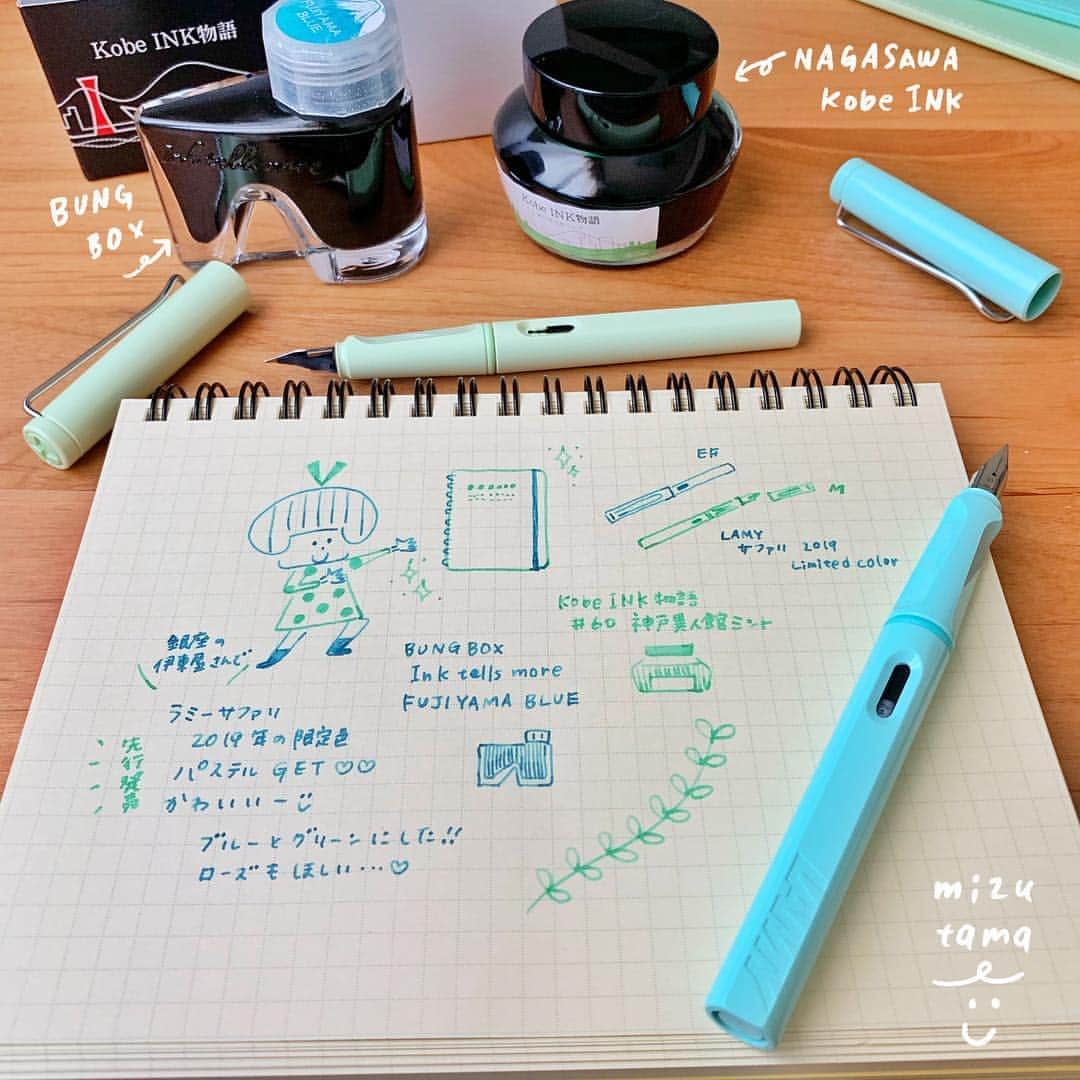 Kobe INK物語
FUJIYAMA
BLUE
NAGASAWA
Kobe INK
BUNG
BOX
Ink tells more
Kobe INK物語
EF
M
LAMY
サファリ 2019
Limited color
Kobe INK物語
#60 神戸異人館ミント
銀座の
伊東屋さんで
BUNGBOX
Ink tells more
FUJIYAMA BLUE
ラミーサファリ
2019年の限定色
パステル GET♡♡
かわいいー
先行発売
ブルーとグリーンにした!!
ローズもほしい…♡
LAMY
mizu
tama